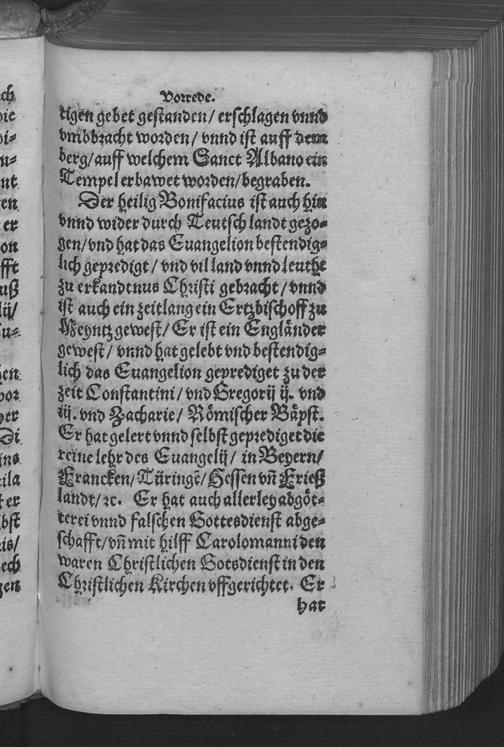 Vorrede.
tigen gebet gestanden / erschlagen vnnd
vmbbracht worden / vnnd ist auff dem
berg / auff welchem Sanct Albano ein
Tempel erbawet worden / begraben.
Der heilig Bonifacius ist auch hin
vnnd wider durch Teutschlandt gezo⸗
gen / vnd hat das Euangelion bestendig⸗
lich gepredigt / vnd vil land vnnd leuthe
zu erkandtnus Christi gebracht / vnnd
ist auch ein zeitlang ein Ertzbischoff zu
Meyntz gewest / Er ist ein Engländer
gewest / vnnd hat gelebt vnd bestendig⸗
lich das Euangelion geprediget zu der
zeit Constantini / vnd Gregorij ij. vnd
iij. vnd Zacharie / Römischer Bäpst.
Er hat gelert vnnd selbst geprediget die
reine lehr des Euangelij / in Beyern /
Francken / Türingē / Hessen vñ Frieß
landt / ꝛc. Er hat auch allerley abgöt⸗
terei vnnd falschen Gottesdienst abge⸗
schafft / vñ mit hilff Carolomanni den
waren Christlichen Gotsdienst in den
Christlichen Kirchen vffgerichtet. Er
hat